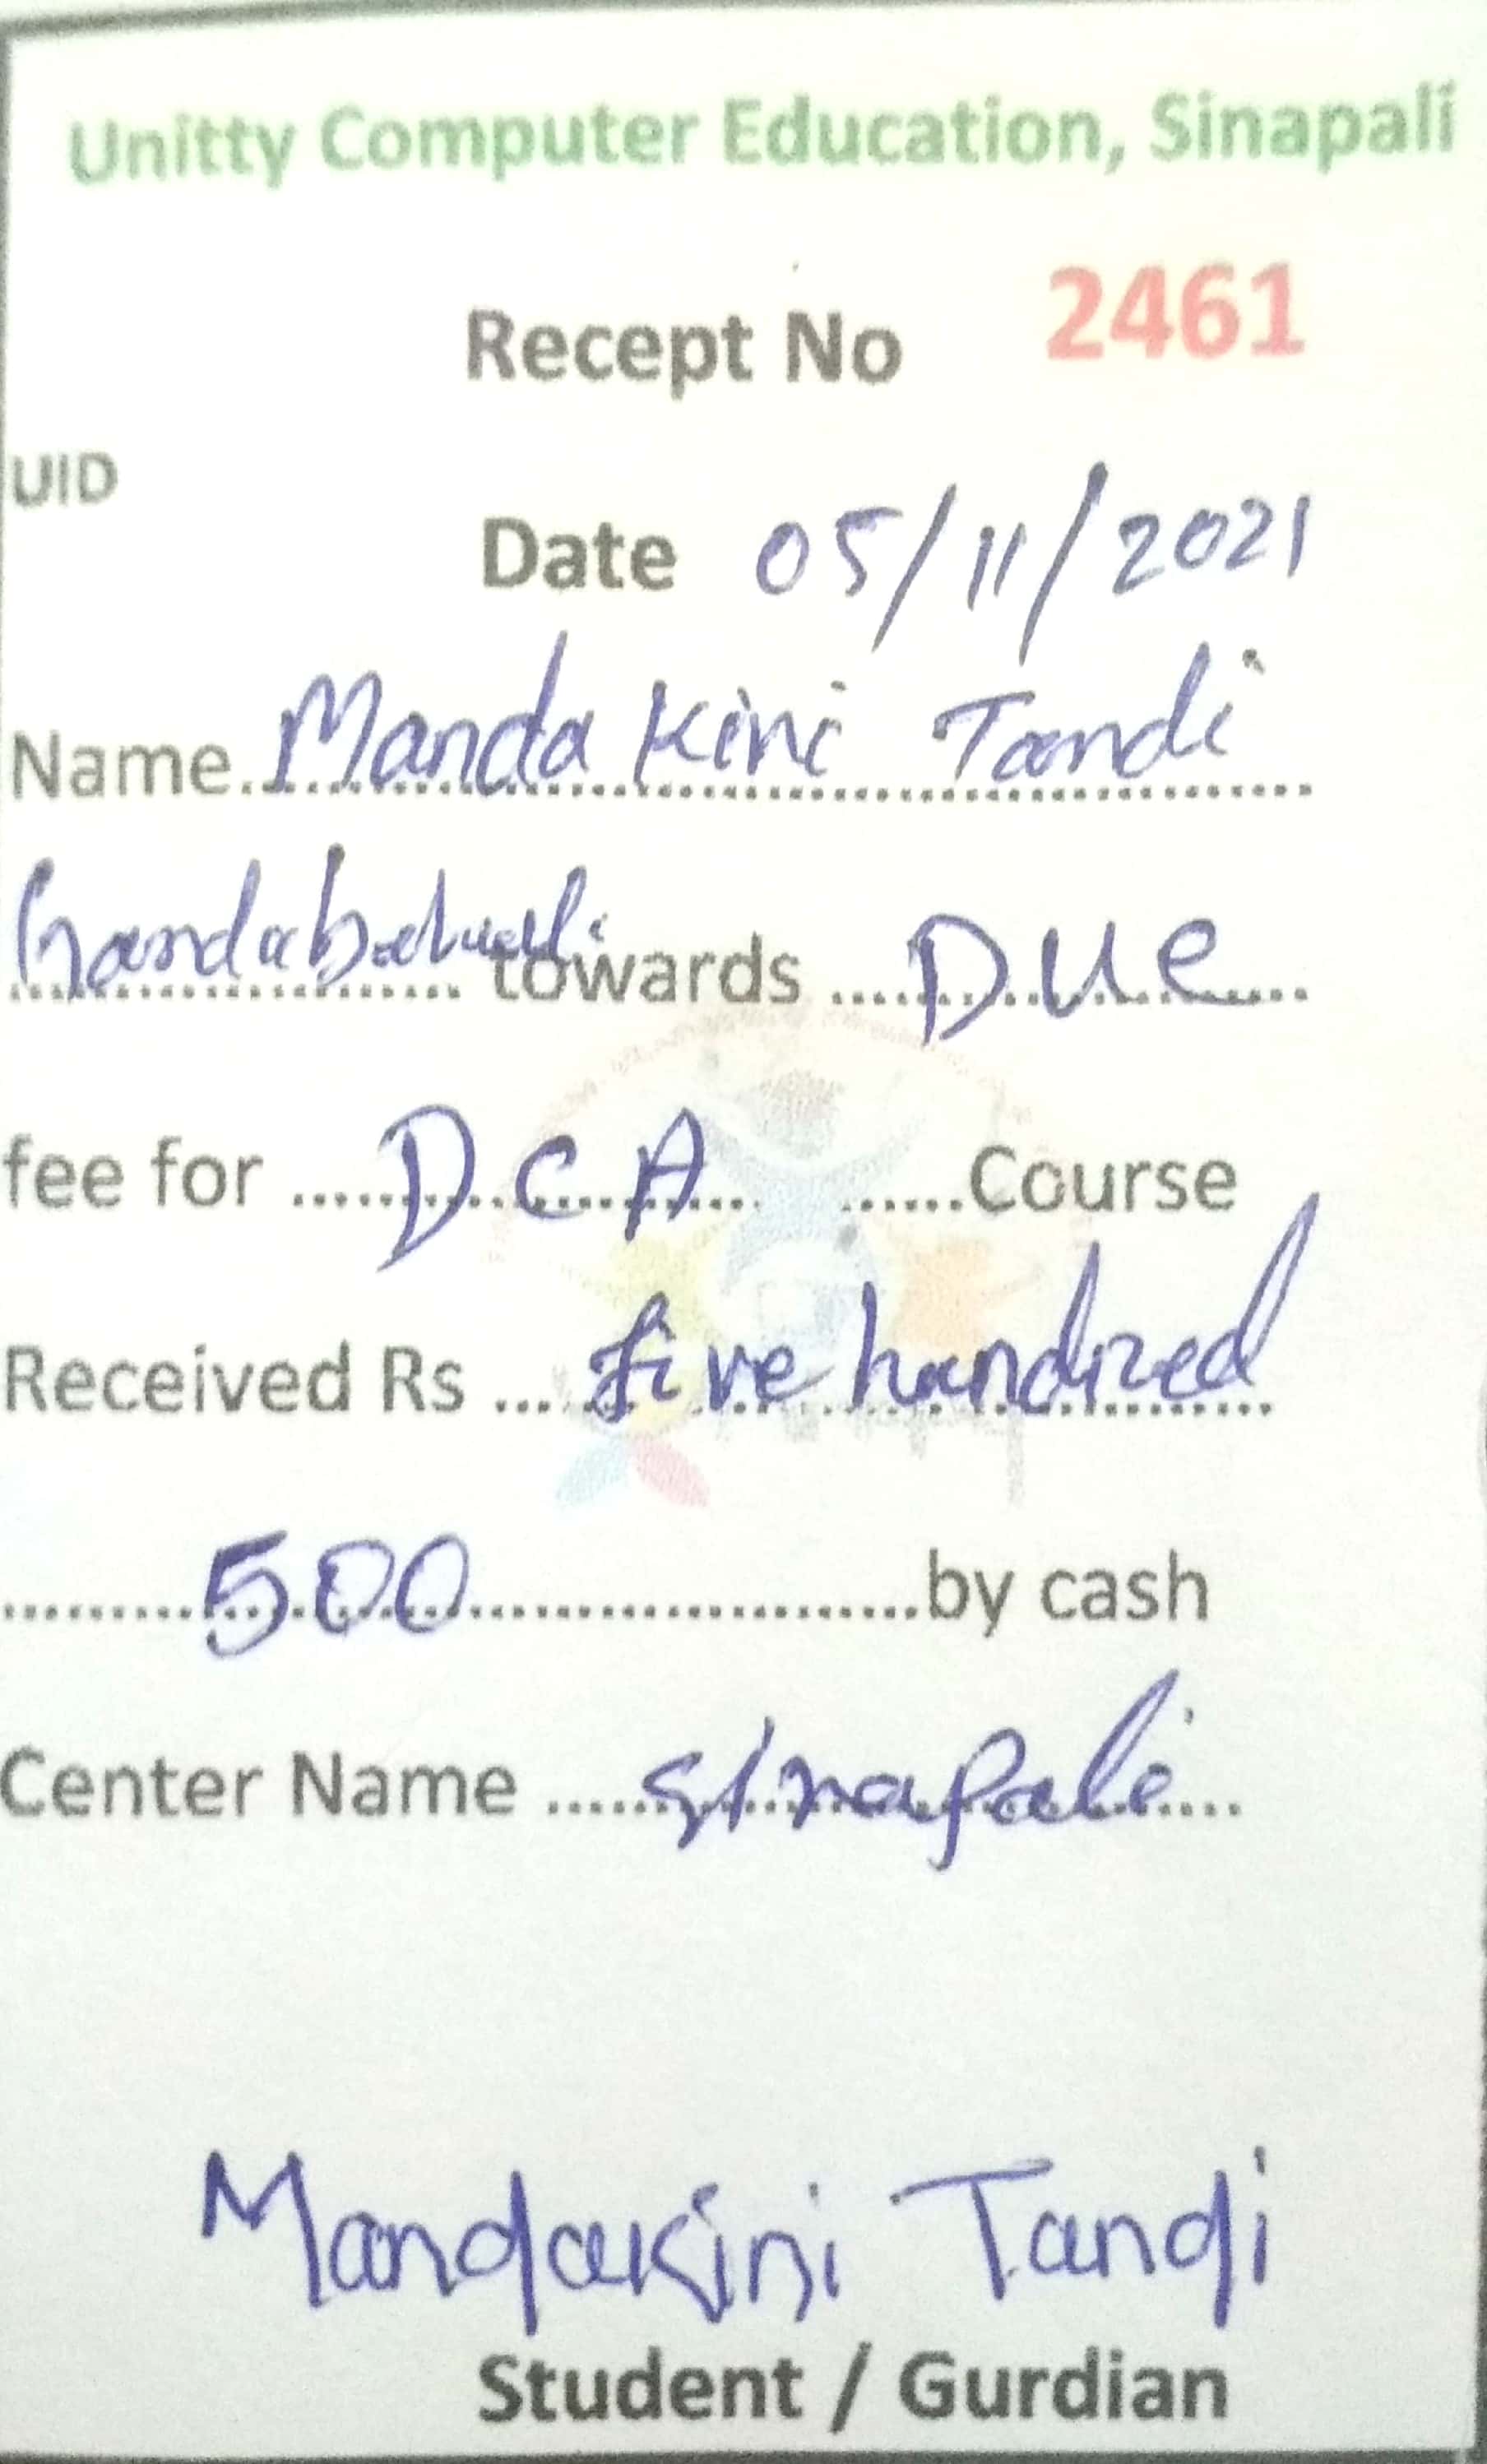 Unitty Computer Education, Sinapali
Recept No 2461
UID
Date 05/11/2021
Name Manda Kini Tandi
towards Due
fee for DCA Course
Received Rs five hundred
500 by cash
Center Name Sinapali
Mandakini Tandi
Student / Gurdian